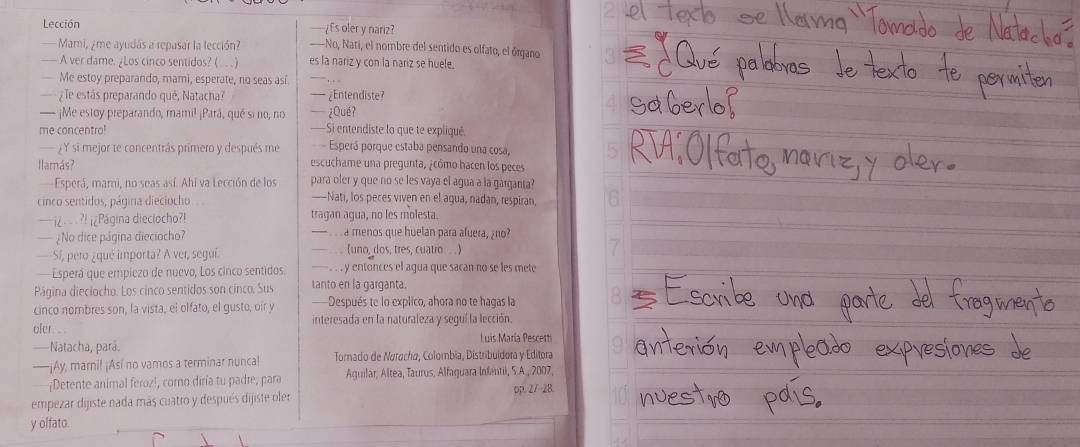 Lección
—Mami, ¿me ayudás a repasar la lección?
—A ver dame. ¿Los cinco sentidos? (. . .)
— Me estoy preparando, mami, esperate, no seas así.
— ¿Te estás preparando qué, Natacha?
— ¡Me estoy preparando, mami! ¡Pará, qué si no, no
me concentro!
— ¿Y si mejor te concentrás primero y después me
llamás?
—Esperá, mami, no seas así. Ahí va Lección de los
cinco sentidos, página dieciocho. . .
—¡¿. . .?! ¡¿Página dieciocho?!
— ¿No dice página dieciocho?
— Sí, pero ¿qué importa? A ver, seguí.
—Esperá que empiezo de nuevo, Los cinco sentidos.
Página dieciocho. Los cinco sentidos son cinco. Sus
cinco nombres son, la vista, el olfato, el gusto, oír y
oler. . .
—Natacha, pará.
—¡Ay, mami! ¡Así no vamos a terminar nunca!
—¡Detente animal feroz!, como diría tu padre, para
empezar dijiste nada más cuatro y después dijiste oler
y olfato.
—¿Es oler y nariz?
—No, Nati, el nombre del sentido es olfato, el órgano
es la nariz y con la nariz se huele.
—. . .
— ¿Entendiste?
— ¿Qué?
—Si entendiste lo que te expliqué.
— Esperá porque estaba pensando una cosa,
escuchame una pregunta, ¿cómo hacen los peces
para oler y que no se les vaya el agua a la garganta?
—Nati, los peces viven en el agua, nadan, respiran,
tragan agua, no les molesta.
—. . .a menos que huelan para afuera, ¿no?
—. . . (uno, dos, tres, cuatro. . .)
—. . .y entonces el agua que sacan no se les mete
tanto en la garganta.
—Después te lo explico, ahora no te hagas la
interesada en la naturaleza y seguí la lección.
Luis María Pescetti
Tomado de Natacha, Colombia, Distribuidora y Editora
Aguilar, Altea, Taurus, Alfaguara Infantil, S.A., 2007,
pp. 27-28.
2 el texto se llama "Tomado de Natacha"
3 ¿Qué palabras de texto te permiten
4 saberlo?
5 RTA: Olfato, nariz, y oler.
6
7
8 Escribe una parte del fragmento
9 anterión empleado expresiones de
10 nuestro país.